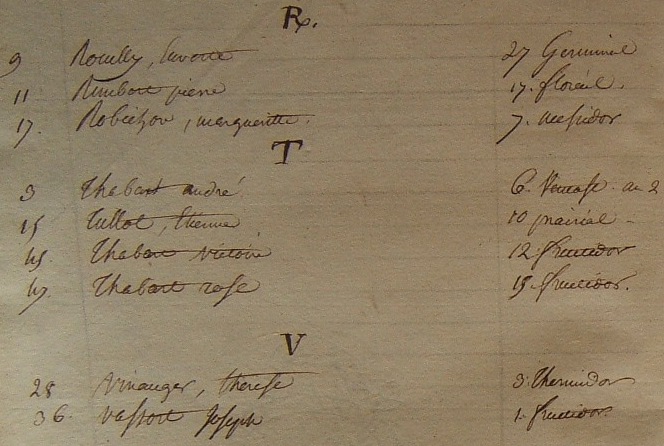 R.
9 Rouilly, 27 Germinal
11 Rimbart pierre 17. floréal.
17. Robichon, margueritte. 7. messidor
T
3 Thabart andré 6. Ventose. an 2
15 Tullot, Etienne 10 prairial -
45. Thabart victoire 12. fructidor
47. Thabart rose 15. fructidor.
V
28 Vinauger, therese 3. thermidor
36. Vassort Joseph 1. fructidor